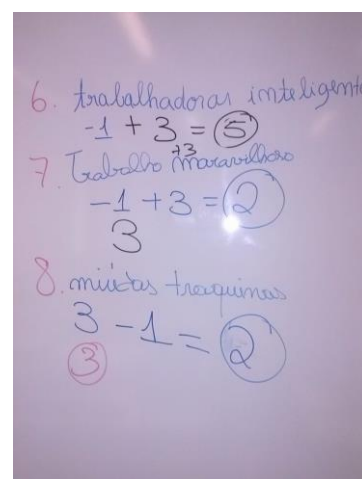 6. trabalhadoras inteligent
-1 + 3 = 5
+3
7. Trabalho maravilhoso
-1 + 3 = 2
3
8. miúdas traquinas
3 - 1 = 2
3